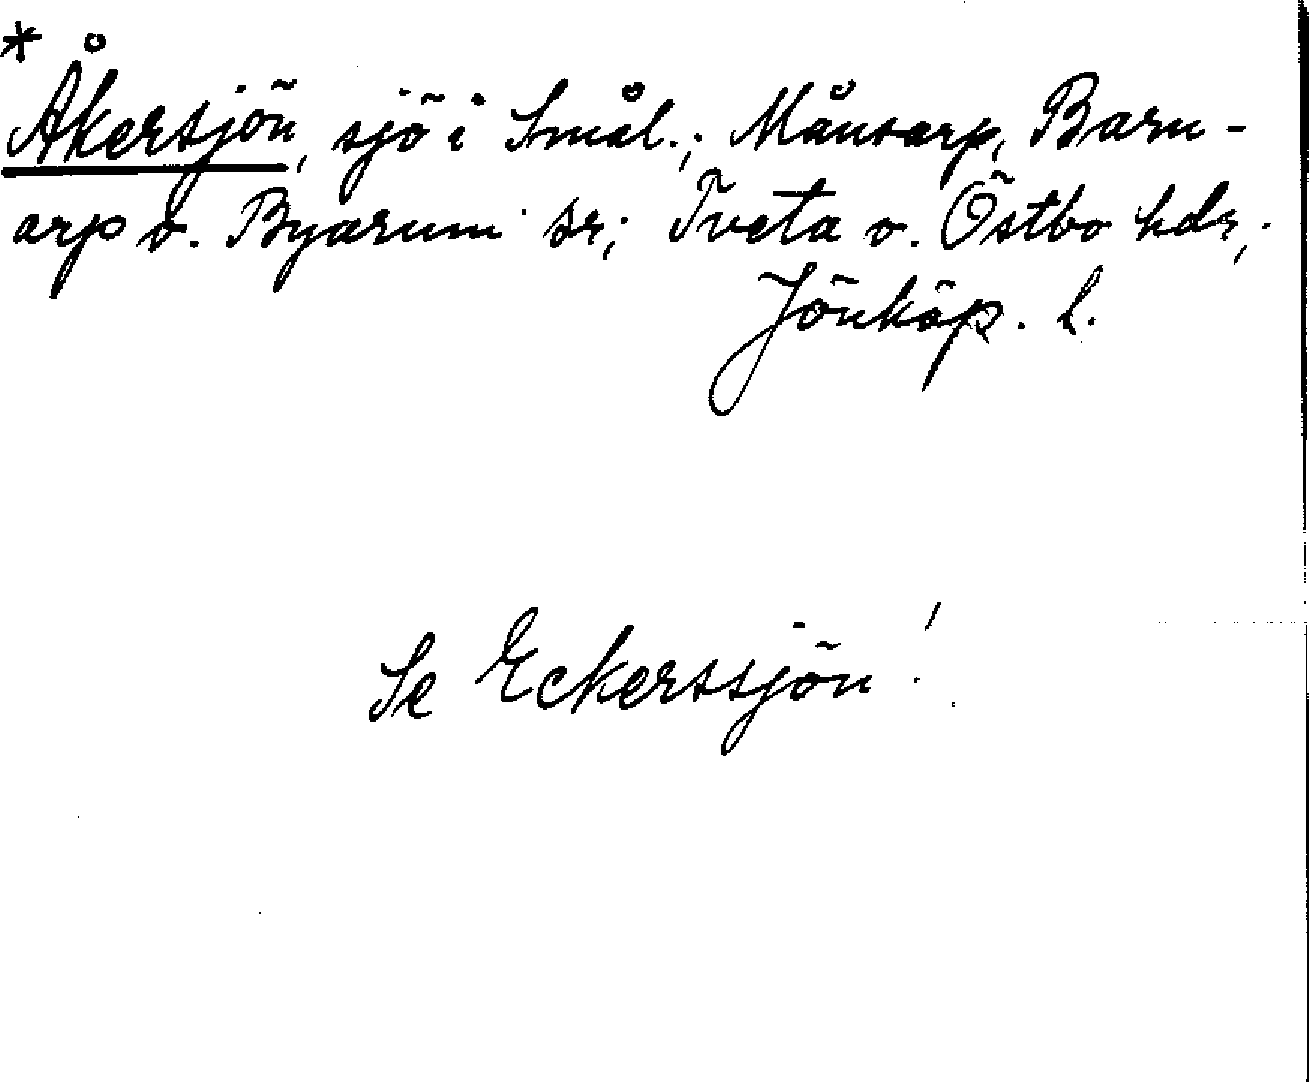 * Åkersjön, sjö i Smål.; Månsarp, Barn-
arp o. Byarum sr; Tveta o. Östbo hdr,
Jönköp. l.
Se Eckerssjön!